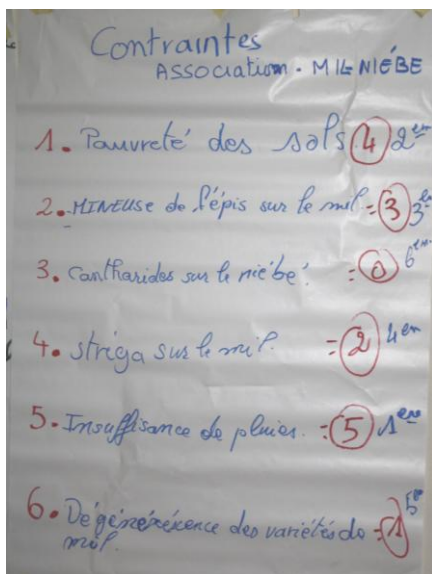 Contraintes
Association - MIL NIÉBE
1. Pauvreté des sols (4) 2em
2. MINEUSE de l'épis sur le mil = (3) 3em
3. Cantharides sur le niébé = (0) 6em
4. striga sur le mil = (2) 4em
5. Insuffisance de pluies = (5) 1ere
6. Dégénérérence des variétés de = (1) 5e
mil.